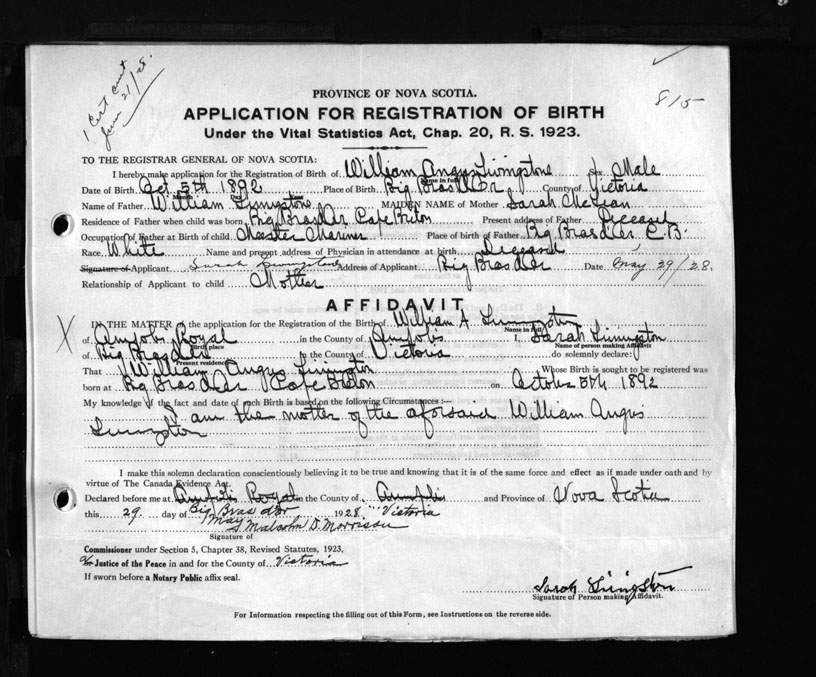 1 Cert Cert
June 21/28.
815
PROVINCE OF NOVA SCOTIA.
APPLICATION FOR REGISTRATION OF BIRTH
Under the Vital Statistics Act, Chap. 20, R. S. 1923.
TO THE REGISTRAR GENERAL OF NOVA SCOTIA:
I hereby make application for the Registration of Birth of William Angus Livingstone Sex Male
Name in full
Date of Birth Oct 5th 1892 Place of Birth Big Brasdor County of Victoria
Month Day
Name of Father William Livingstone MAIDEN NAME of Mother Sarah
Residence of Father when child was born Big Brasdor Cape Breton Present address of Father Deceased
Occupation of Father at Birth of child Master Mariner Place of birth of Father Big Brasdor C.B.
Race White Name and present address of Physician in attendance at birth Deceased
Signature of Applicant Sarah Livingstone Address of Applicant Big Brasdor Date May 29/28.
Relationship of Applicant to child Mother
AFFIDAVIT
IN THE MATTER of the application for the Registration of the Birth of William A. Livingston
Name in full
of Royal in the County of I, Sarah Livingston
Birth place Name of person making Affidavit
of Big Brasdor in the County of Victoria do solemnly declare:
Present residence
That William Angus Livingston Whose Birth is sought to be registered was
born at Big Brasdor Cape Breton on October 5th 1892
My knowledge of the fact and date of such Birth is based on the following Circumstances:—
I am the mother of the aforsaid William Angus
Livingston
I make this solemn declaration conscientiously believing it to be true and knowing that it is of the same force and effect as if made under oath and by
virtue of The Canada Evidence Act.
Declared before me at Royal in the County of and Province of Nova Scotia
this 29 day of Big Bras d'or 1928 Victoria
May
Malcolm D. Morrison
Signature of
Commissioner under Section 5, Chapter 38, Revised Statutes, 1923,
or Justice of the Peace in and for the County of Victoria
If sworn before a Notary Public affix seal.
Sarah Livingston
Signature of Person making Affidavit.
For Information respecting the filling out of this Form, see Instructions on the reverse side.